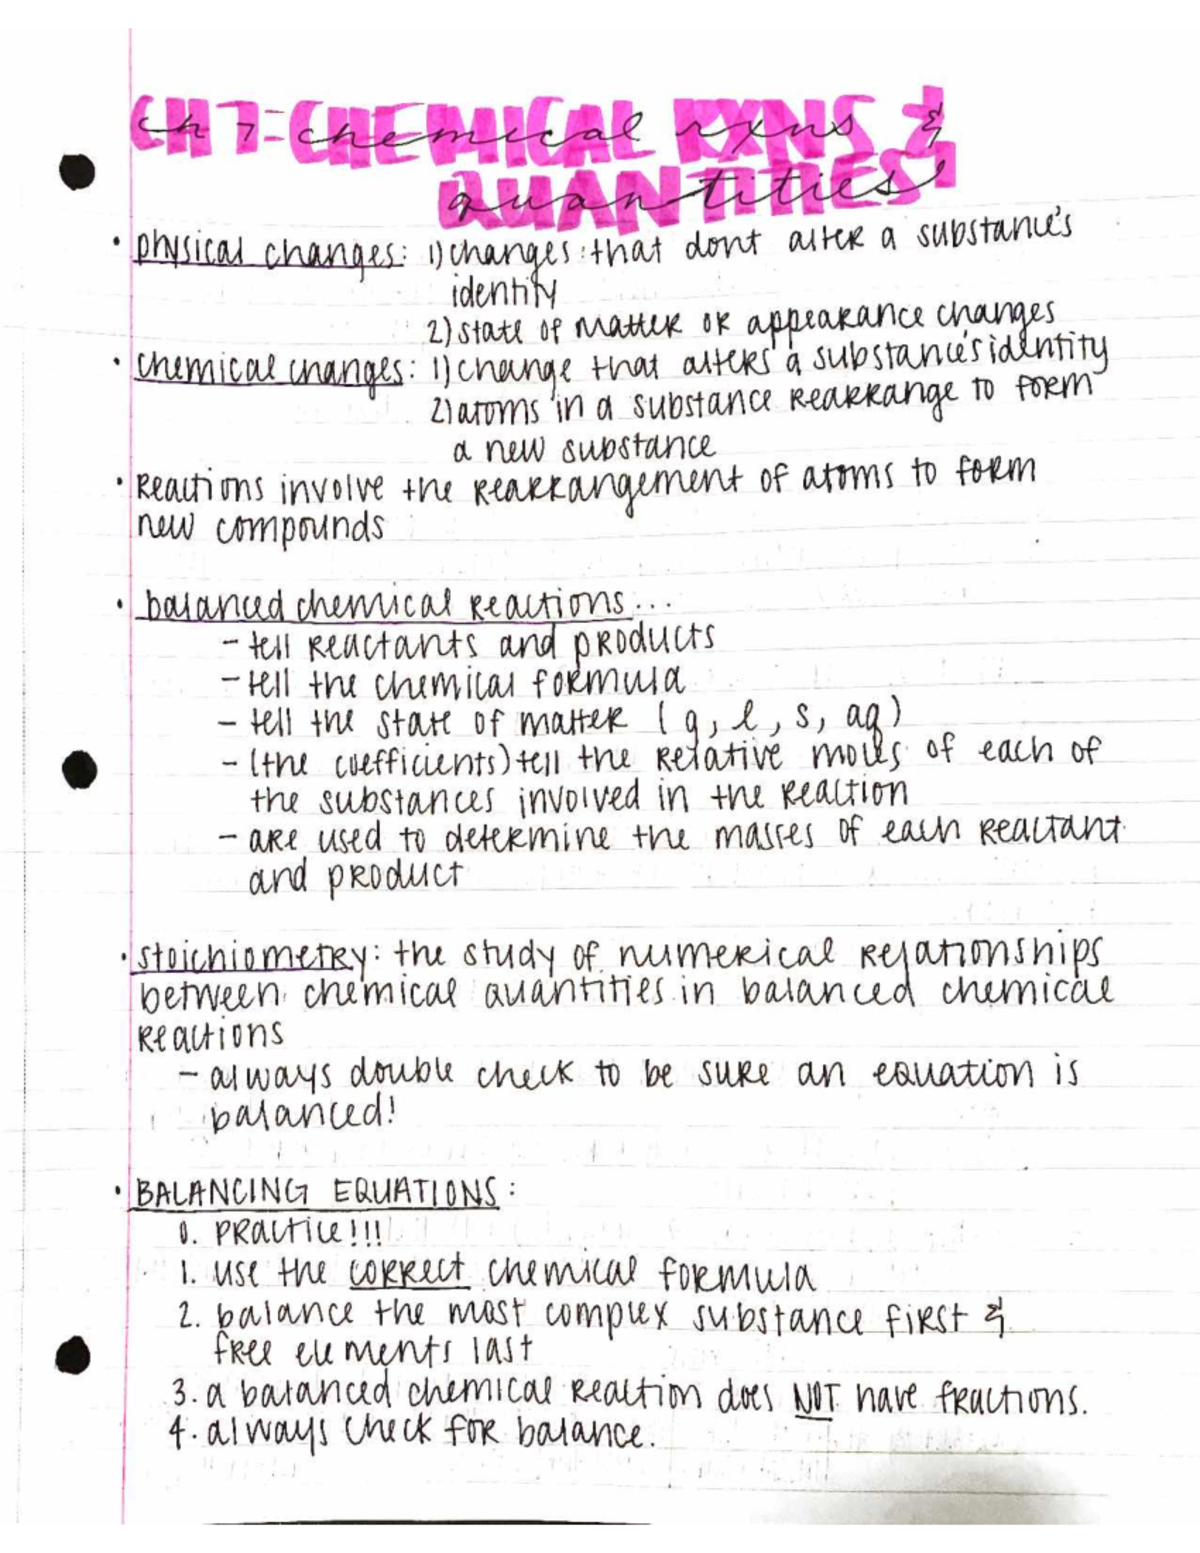 Ch 7: Chemical rxns &
quantities
• physical changes: 1) changes that dont alter a substance's
identity
2) state of matter or appearance changes
• chemical changes: 1) change that alters a substance's identity
2) atoms in a substance rearrange to form
a new substance
• Reactions involve the rearrangement of atoms to form
new compounds
• balanced chemical reactions...
- tell reactants and products
- tell the chemical formula
- tell the state of matter (g, l, s, aq)
- (the coefficients) tell the relative moles of each of
the substances involved in the reaction
- are used to determine the masses of each reactant
and product
• stoichiometry: the study of numerical relationships
between chemical quantities in balanced chemical
reactions
- always double check to be sure an equation is
balanced!
• BALANCING EQUATIONS:
0. practice!!!
1. use the correct chemical formula
2. balance the most complex substance first &
free elements last
3. a balanced chemical reaction does NOT have fractions.
4. always check for balance.